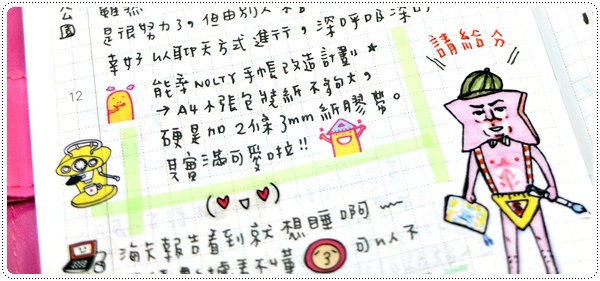 公園
是很努力了,但由別人
幸好以聊天方式進行,深呼吸深
12
能率NOLTY手帳改造計劃★
→A4小張包裝紙不夠大,
硬是加2條3mm紙膠帶。
其實滿可愛啦!!
請給分
海 報告看到就想睡啊~